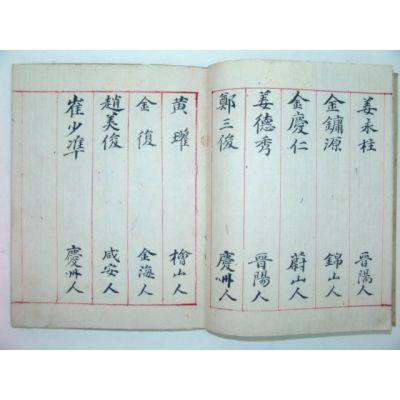 姜永柱 晉陽人
金鏞源 錦山人
金慶仁 蔚山人
姜德秀 晉陽人
鄭三俊 慶州人
黄㬢 檜山人
金復 金海人
趙美俊 咸安人
崔少準 慶州人